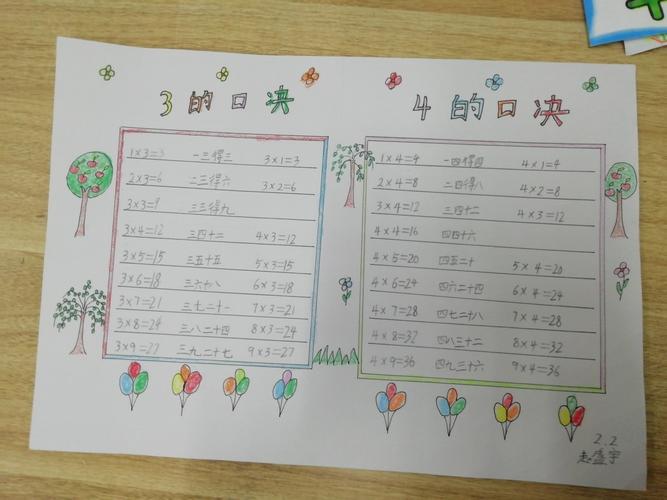 3 的口决
1×3=3 一三得三 3×1=3
2×3=6 二三得六 3×2=6
3×3=9 三三得九
3×4=12 三四十二 4×3=12
3×5=15 三五十五 5×3=15
3×6=18 三六十八 6×3=18
3×7=21 三七二十一 7×3=21
3×8=24 三八二十四 8×3=24
3×9=27 三九二十七 9×3=27
4 的口决
1×4=4 一四得四 4×1=4
2×4=8 二四得八 4×2=8
3×4=12 三四十二 4×3=12
4×4=16 四四十六
4×5=20 四五二十 5×4=20
4×6=24 四六二十四 6×4=24
4×7=28 四七二十八 7×4=28
4×8=32 四八三十二 8×4=32
4×9=36 四九三十六 9×4=36
2.2
赵盛宇